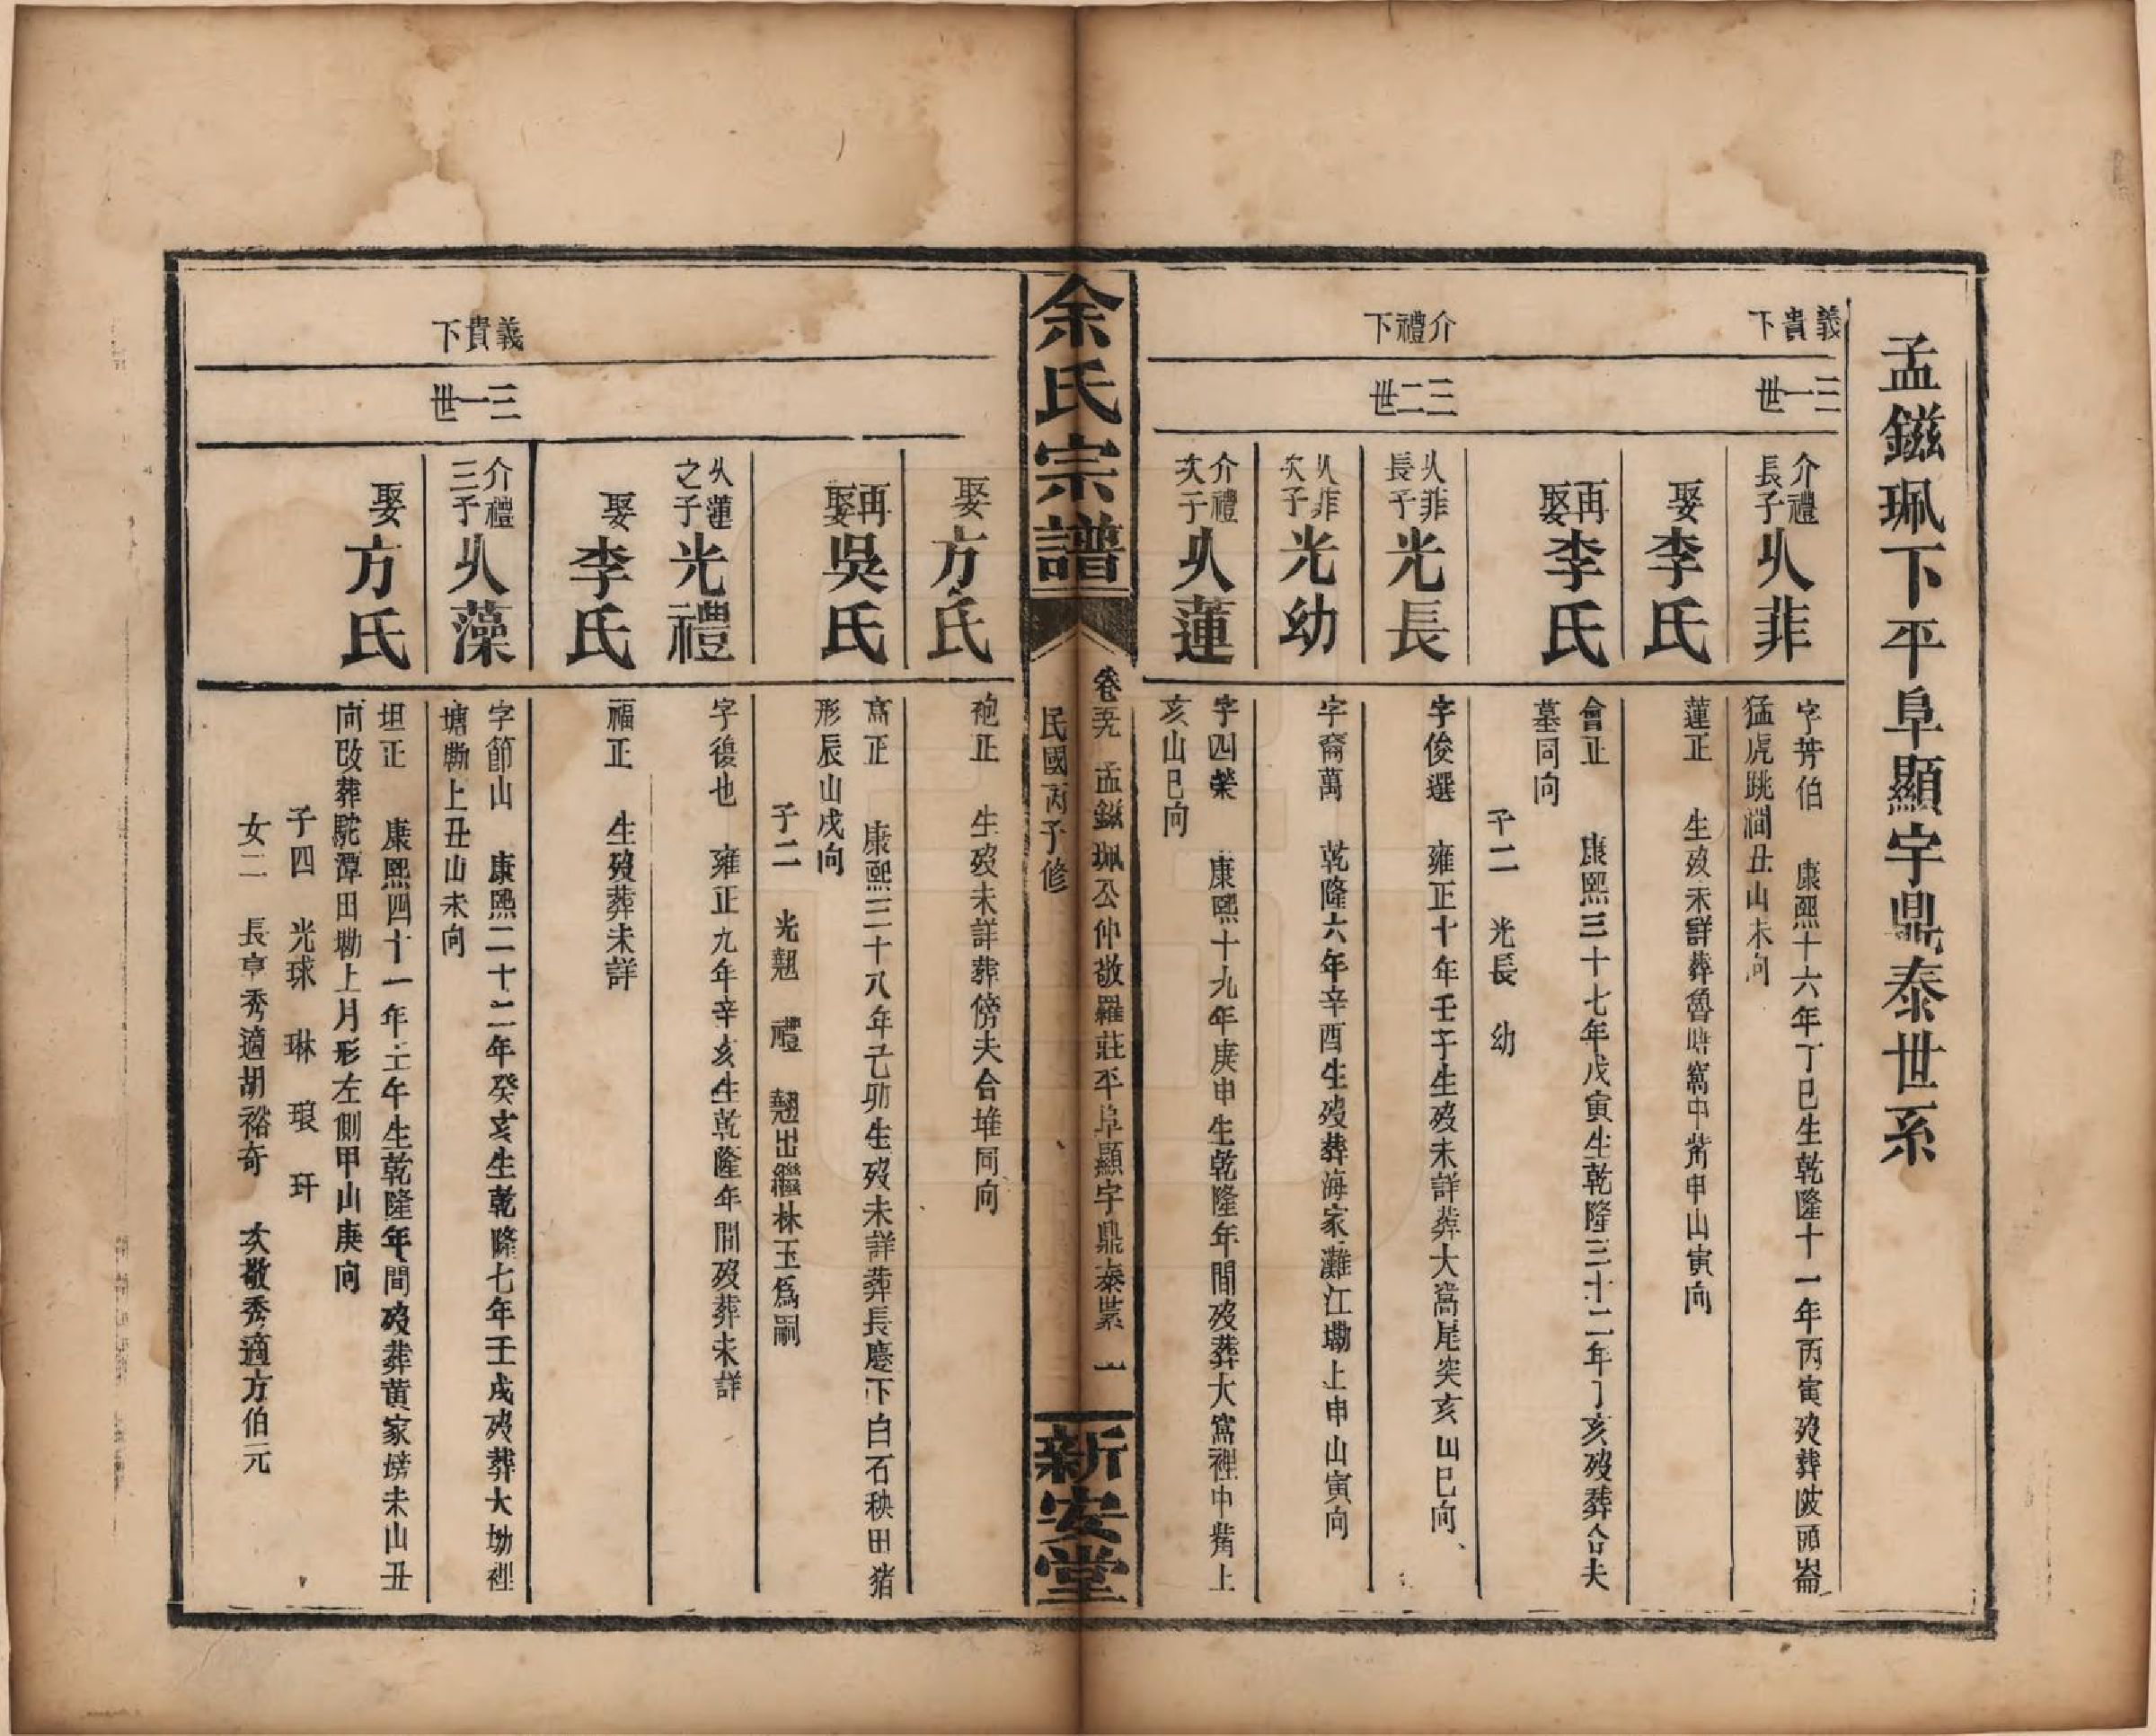 孟鎡珮下平阜顯宇鼎泰世系
義貴下
三一世
介禮長子 㕥菲
字芳伯 康熙十六年丁巳生乾隆十一年丙寅歿葬陂頭崙
猛虎跳澗丑山未向
娶李氏
蓮正 生歿未詳葬魯塘窩中嘴申山寅向
再娶李氏
會正 康熙三十七年戊寅生乾隆三十二年丁亥歿葬合夫
墓同向
子二 光長 幼
介禮下
三二世
㕥菲長子 光長
字俊選 雍正十年壬子生歿未詳葬大窩尾突亥山巳向
㕥菲次子 光幼
字裔萬 乾隆六年辛酉生歿葬海家灘江墈上申山寅向
介禮次子 㕥蓮
字四榮 康熙十九年庚申生乾隆年間歿葬大窩裡中嘴上
亥山巳向
余氏宗譜
卷五 孟鎡珮公仲敬羅莊平阜顯宇鼎泰系 一
民國丙子修
新安堂
娶方氏
袍正 生歿未詳葬傍夫合堆同向
再娶吳氏
高正 康熙三十八年己卯生歿未詳葬長慶下白石秧田猪
形辰山戌向
子二 光翹 禮 翹出繼林玉爲嗣
㕥蓮之子 光禮
字復也 雍正九年辛亥生乾隆年間歿葬未詳
娶李氏
福正 生歿葬未詳
義貴下
三一世
介禮三子 㕥藻
字節山 康熙二十二年癸亥生乾隆七年壬戌歿葬大坳裡
塘墈上丑山未向
娶方氏
坦正 康熙四十一年壬午生乾隆年間歿葬黄家塝未山丑
向改葬駝潭田墈上月形左側甲山庚向
子四 光球 琳 琅 玕
女二 長亨秀適胡裕奇 次敬秀適方伯元